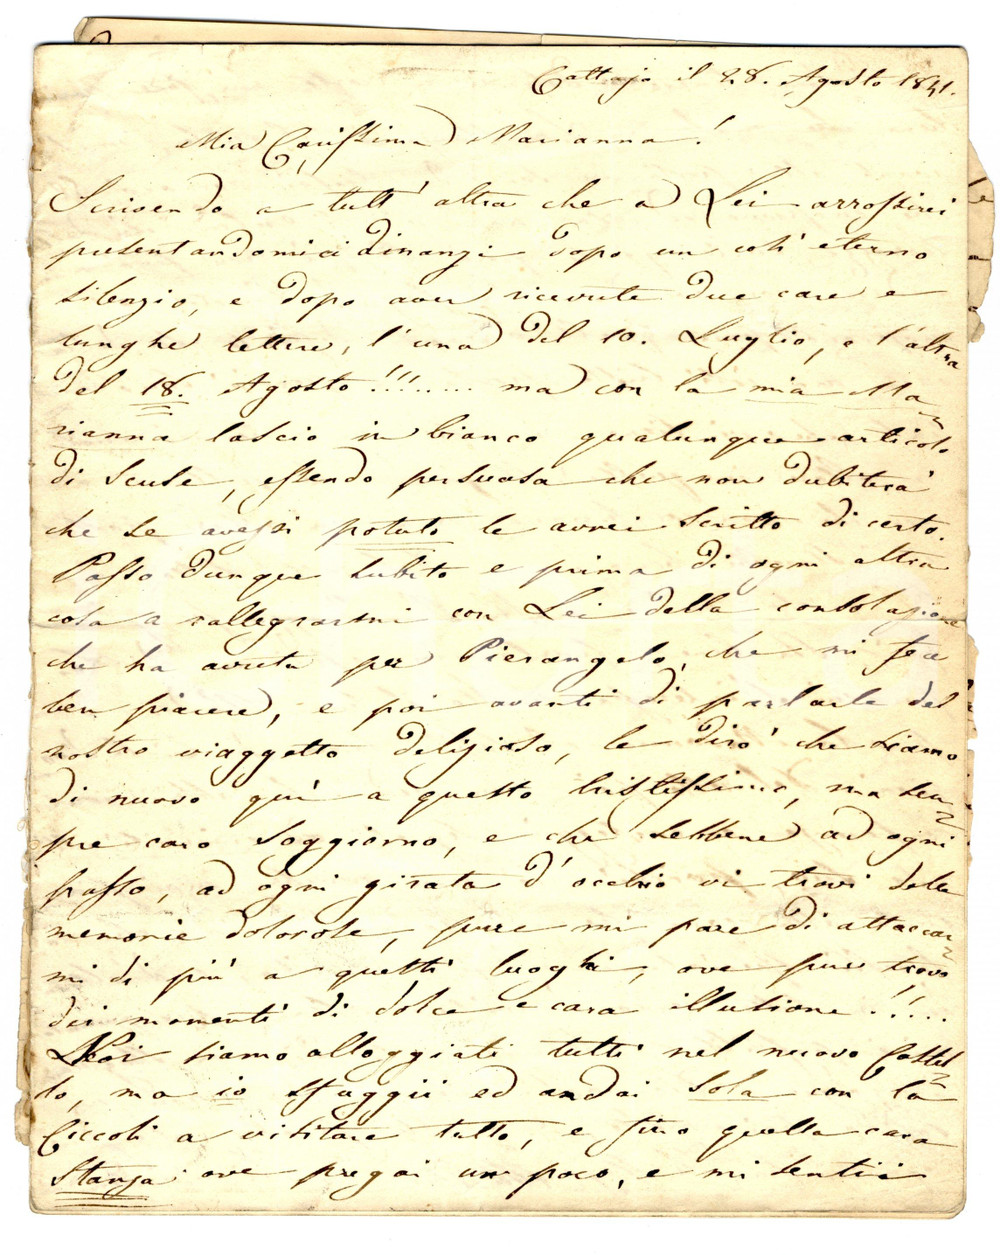 Cattajo il 28. Agosto 1841.
Mia Carissima Marianna!
Scrivendo a tutt' altra che a Lei arrossirei
presentandomici dinanzi dopo un così eterno
silenzio, e dopo aver ricevute due care e
lunghe lettere, l'una del 10. Luglio, e l'altra
del 18. Agosto!!!...... ma con la mia Ma-
rianna lascio in bianco qualunque articolo
di scuse, essendo persuasa che non dubiterà
che se avessi potuto le avrei scritto di certo.
Passo dunque subito e prima di ogni altra
cosa a rallegrarmi con Lei della consolazione
che ha avuta per Pierangelo, che mi fece
ben piacere, e poi avanti di parlarle del
nostro viaggetto delizioso, le dirò che siamo
di nuovo quì a questo tristissimo, ma sem-
pre caro soggiorno, e che sebbene ad ogni
passo, ad ogni girata d'occhio vi trovi delle
memorie dolorose, pure mi pare di attaccar-
mi di più a questi luoghi, ove pur trovo
dei momenti di dolce e cara illusione!!....
Noi siamo alloggiati tutti nel nuovo Castel-
lo, ma io sfuggii ed andai sola con la
Ciccoli a visitare tutto, e fino quella cara
Stanza ove pregai un poco, e mi sentii